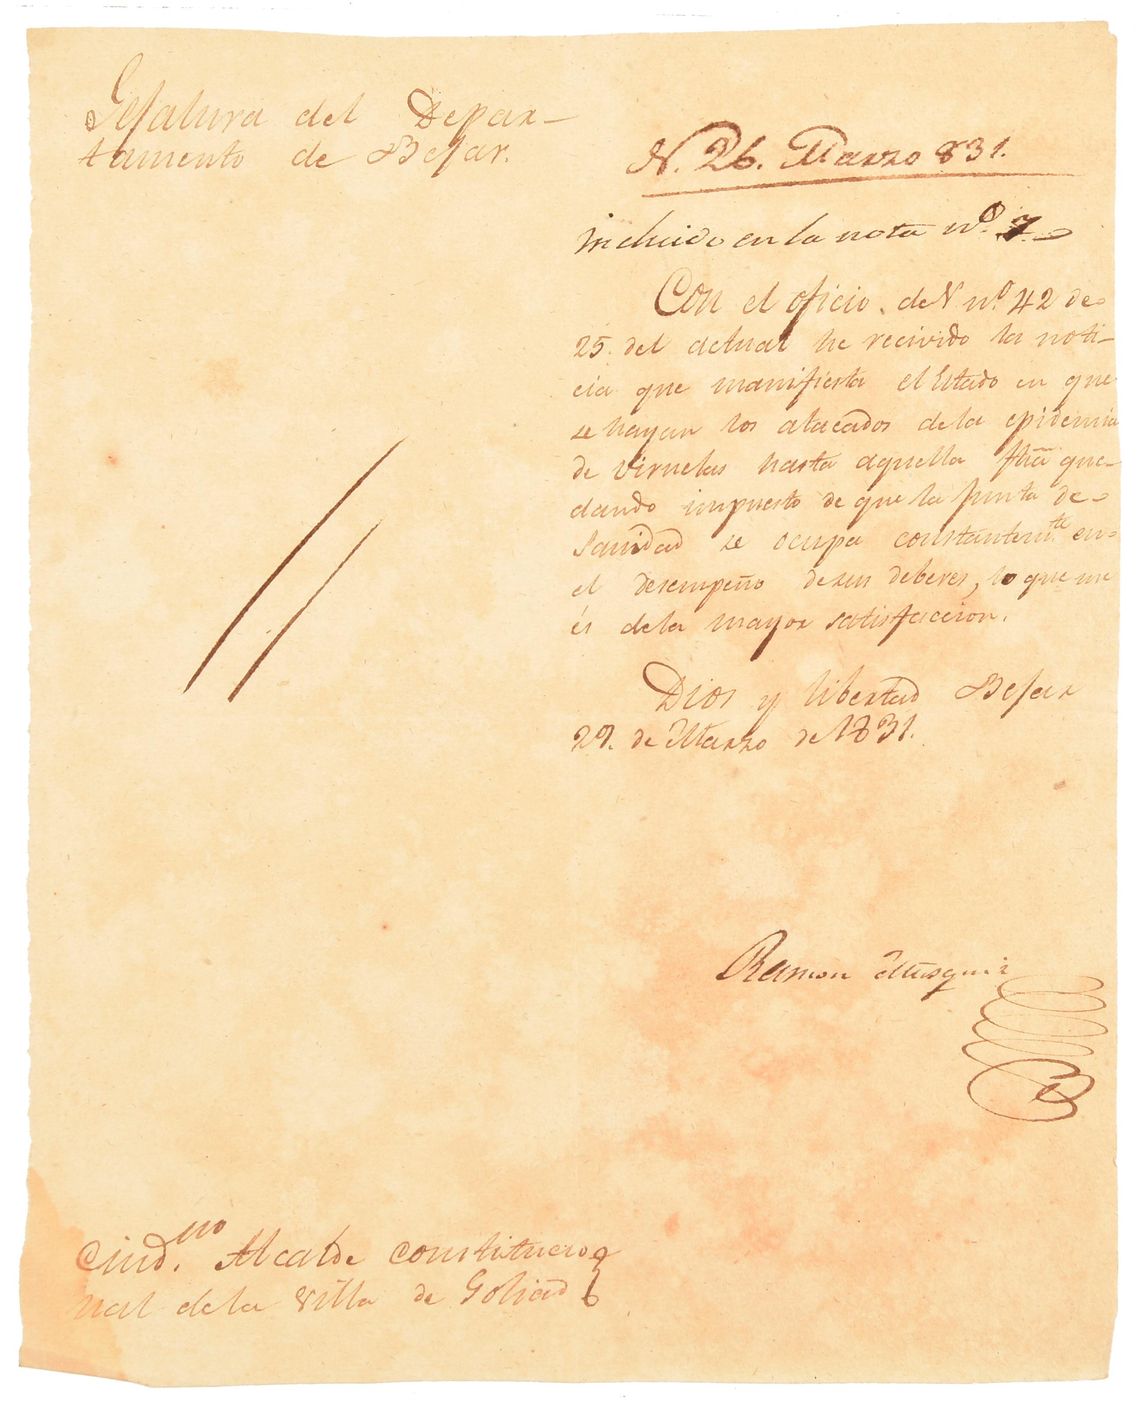 Gefatura del Depar-
tamento de Bejar.
N. 26. Marzo 831.
incluido en la nota nº. 7.
Con el oficio. de V nº. 42 de
25. del actual he recivido la noti-
cia que manifiesta el Estado en que
se hayan los atacados de la epidemia
de viruelas hasta aquella fhã que-
dando impuesto de que la Junta de
Sanidad se ocupa constantemte. en
el desempeño de sus deberes, lo que me
és de la mayor satisfaccion.
Dios y libertad Bejar
29. de Marzo de 1831.
Ramon Musquiz
Ciudno. Alcalde constitucio
nal de la Villa de Goliad